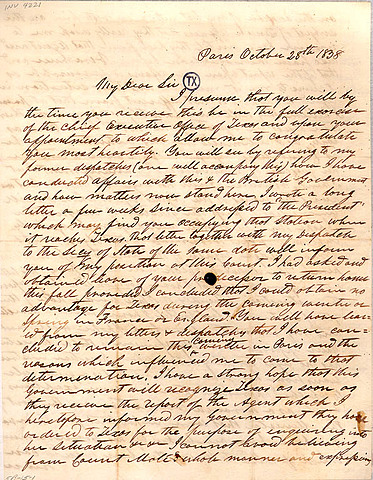 INV 4221
Paris October 28th 1838
My Dear Sir TX
I presume that you will by
the time you receive this be in the full exercise
of the Chief Executive Office of Texas and upon your
appointment to which allow me to congratulate
you most heartily. You will see by refering to my
former dispatches (one will accompany this) how I have
conducted affairs with this & the British Government
and how matters now stand here. I wrote a long
letter a few weeks since addressed to the President
which may find you occupying that Station when
it reaches Texas, that letter together with my dispatch
to the Secy of State of the same date will inform
you of my position at this Court. I had asked and
obtained leave of your predecessor to return home
this fall provided I concluded that I could obtain no
advantage for Texas during the coming winter or
Spring in France or England. You will have lear
ned from my letters & dispatches that I have con-
cluded to remain this coming winter in Paris and the
reasons which influenced me to come to that
determination. I have a strong hope that this
Government will recognize Texas as soon as
they receive the report of the Agent which I
have informed my Government they have
ordered to Texas for the purpose of enquiring into
her situation I cannot avoid believing
from Count Molés whole manner and expression